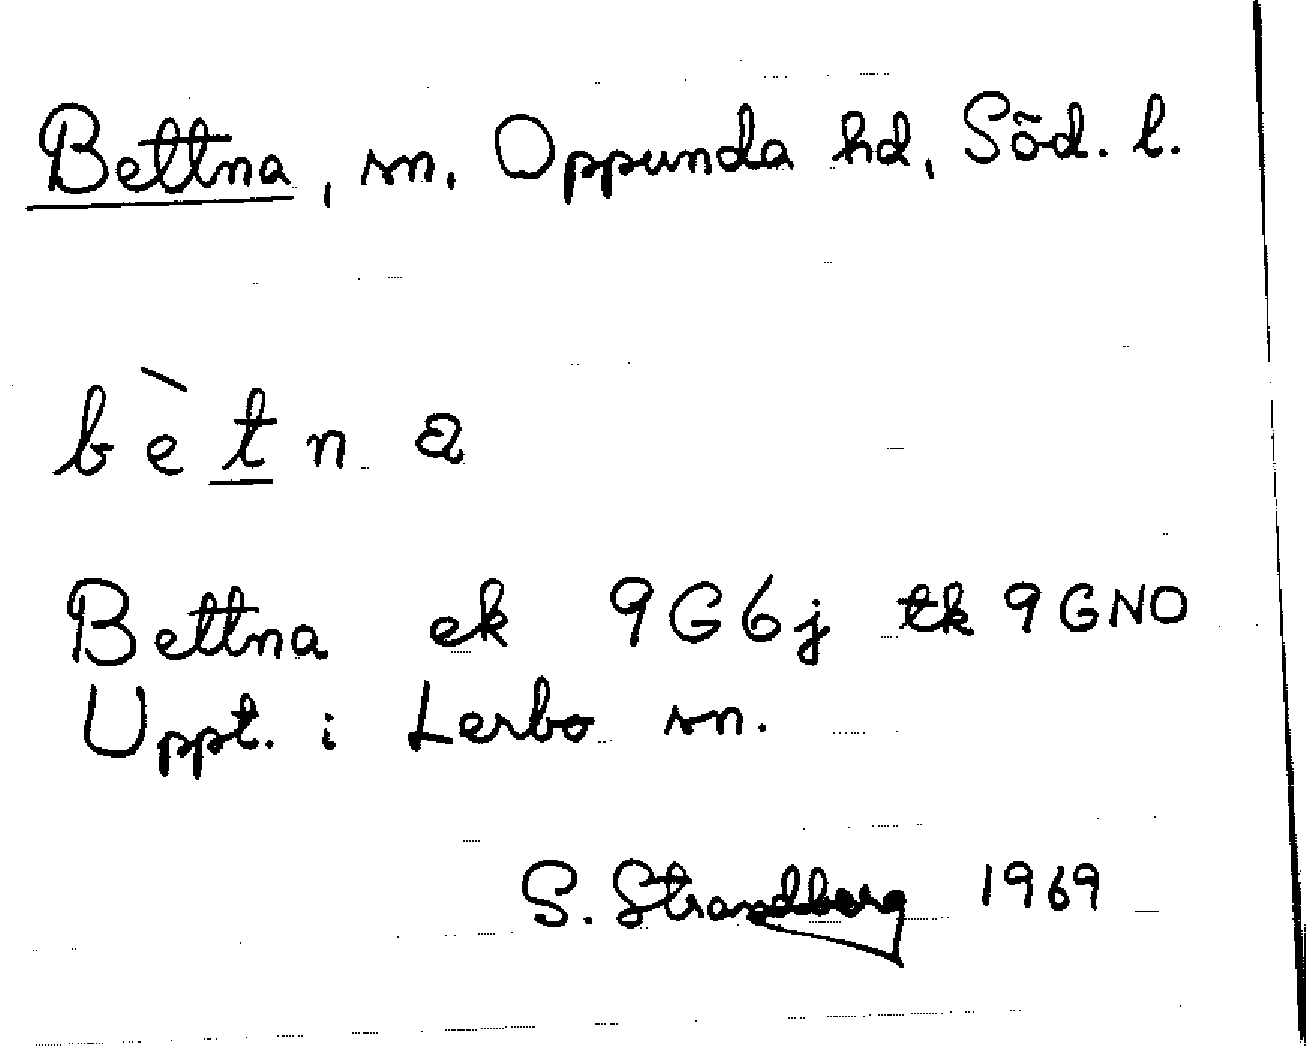 Bettna, sn, Oppunda hd, Söd. l.
bètna
Bettna ek 9G6j tk 9GNO
Uppt. i Lerbo sn.
S. Strandberg 1969